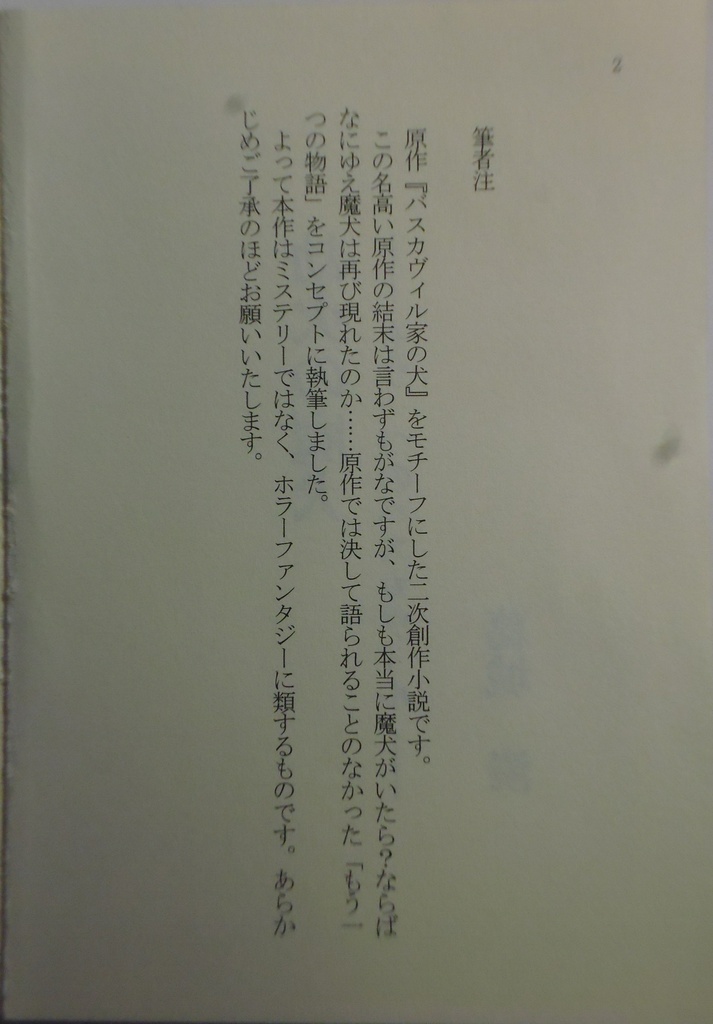 2
筆者注
原作『バスカヴィル家の犬』をモチーフにした二次創作小説です。
この名高い原作の結末は言わずもがなですが、もしも本当に魔犬がいたら？ならば
なにゆえ魔犬は再び現れたのか……原作では決して語られることのなかった「もう一
つの物語」をコンセプトに執筆しました。
よって本作はミステリーではなく、ホラーファンタジーに類するものです。あらか
じめご了承のほどお願いいたします。